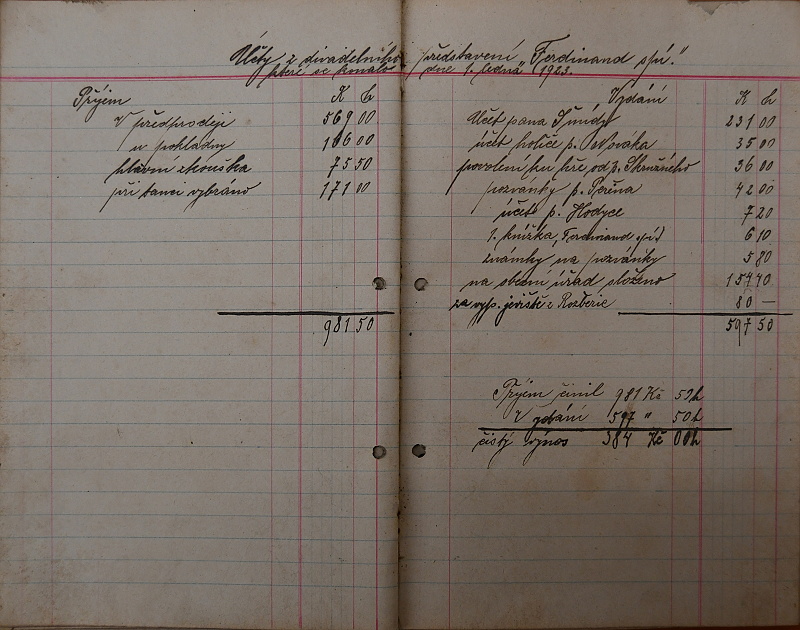 Účty z divadelního představení „Ferdinand spí."
které se konalo dne 1. ledna 1923.
Příjem K h
V předprodeji 569 00
u pokladny 166 00
hlavní zkouška 75 50
při tanci vybráno 171 00
981 50
Vydání K h
Účet pana Šmídy 231 00
účet holiče p. Nováka 35 00
povolení ku hře od p. 36 00
pozvánky p. Peřina 42 00
účet p. Hodyce 7 20
1. knížka „Ferdinand spí" 6 10
známky na pozvánky 5 80
na obecní úřad složeno 154 40
za vyp. jeviště z Rozběřic 80 —
597 50
Příjem činil 981 Kč 50 h
Vydání 597 " 50 h
čistý výnos 384 Kč 00 h